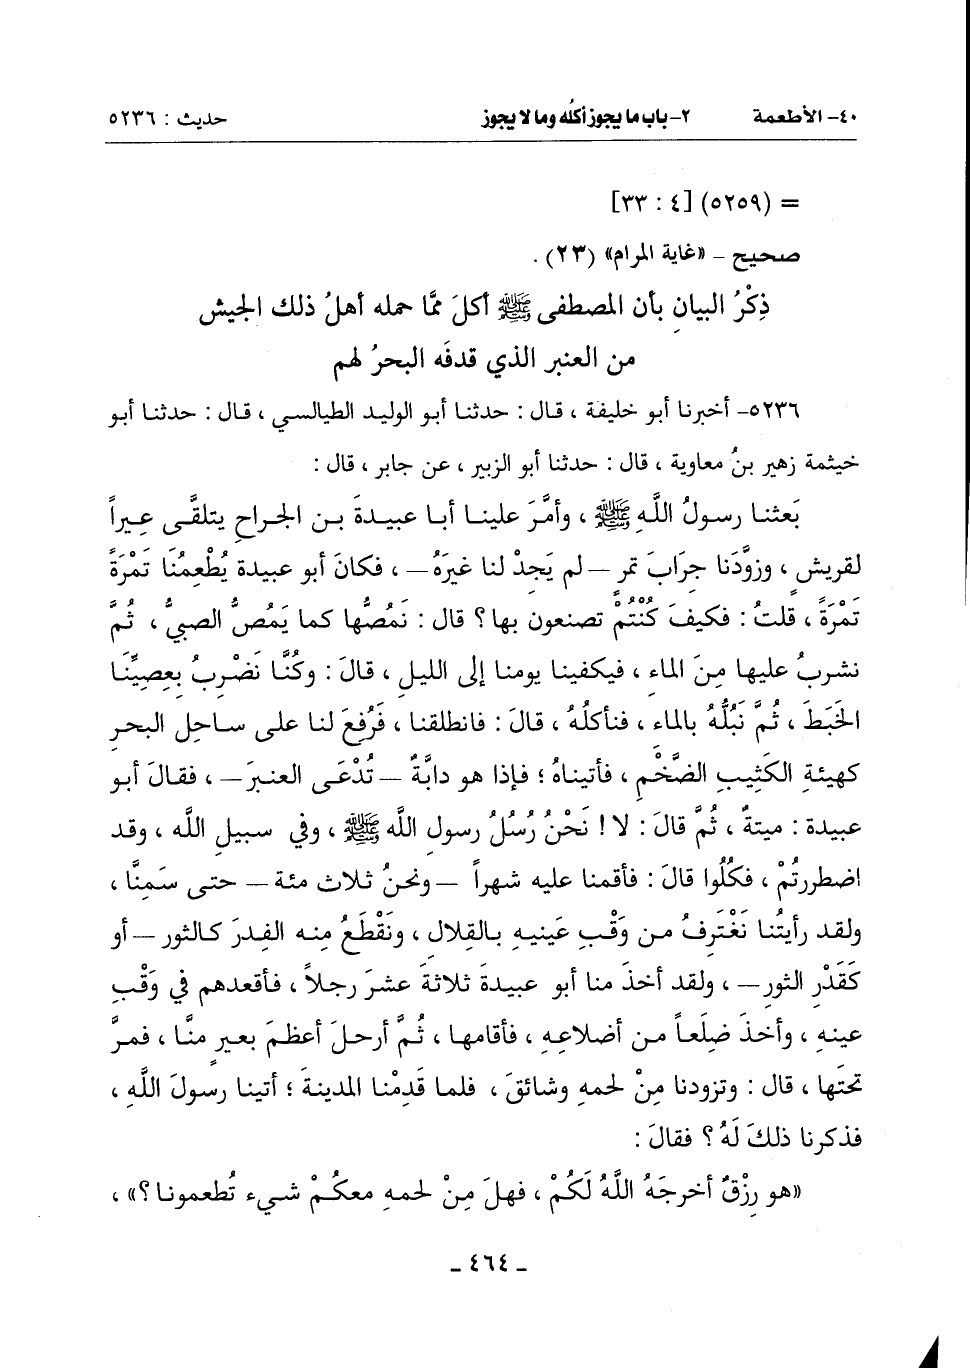 ٤٠- الأطعمة ٢- باب ما يجوز أكلُه وما لا يجوز حديث : ٥٢٣٦
= (٥٢٥٩) [٤ : ٣٣]
صحيح – «غاية المرام» (٢٣) .
ذِكْرُ البيانِ بأن المصطفى ﷺ أكلَ ممَّا حمله أهلُ ذلك الجيش
من العنبر الذي قدفَه البحرُ لهم
٥٢٣٦- أخبرنا أبو خليفة ، قال : حدثنا أبو الوليد الطيالسي ، قال : حدثنا أبو
خيثمة زهير بنُ معاوية ، قال : حدثنا أبو الزبير ، عن جابر ، قال :
بَعثنا رسولُ اللَّهِ ﷺ ، وأمَّرَ علينا أبا عبيدةَ بن الجراحِ يتلقَّى عِيراً
لقريشٍ ، وزوَّدَنا جِرَابَ تمرٍ –لم يَجِدْ لنا غيرَهُ– ، فكانَ أبو عبيدة يُطْعِمُنَا تَمْرَةً
تَمْرَةً ، قلتُ : فكيفَ كُنْتُمْ تصنعون بها؟ قال : نَمُصُّها كما يَمُصُّ الصبيُّ ، ثُمَّ
نشربُ عليها مِنَ الماءِ ، فيكفينا يومنا إلى الليلِ ، قالَ : وكُنَّا نَضْرِبُ بِعِصِيِّنَا
الخَبَطَ ، ثُمَّ نَبُلُّهُ بالماء ، فنأكلُهُ ، قالَ : فانطلقنا ، فَرُفِعَ لنا على ساحِلِ البحرِ
كهيئةِ الكَثِيبِ الضَّخْمِ ، فأتيناهُ ؛ فإذا هو دابَّةٌ –تُدْعَى العنبرَ– ، فقالَ أبو
عبيدة : ميتةٌ ، ثُمَّ قالَ : لا ! نَحْنُ رُسُلُ رسولِ اللَّه ﷺ ، وفي سبيلِ اللَّه ، وقد
اضطررتُمْ ، فكُلُوا قالَ : فأقمنا عليه شهراً –ونحنُ ثلاث مئة– حتى سَمِنَّا ،
ولقد رأيتُنا نَغْتَرِفُ من وَقْبِ عَينيهِ بالقِلالِ ، ونَقْطَعُ منه الفِدَرَ كالثورِ –أو
كَقَدْرِ الثورِ– ، ولقد أخذَ منا أبو عبيدةَ ثلاثةَ عشرَ رجلاً ، فأقعدهم في وَقْبِ
عينهِ ، وأخذَ ضِلَعاً من أضلاعِهِ ، فأقامها ، ثُمَّ أرحلَ أعظمَ بعيرٍ منَّا ، فمرَّ
تحتَها ، قال : وتزودنا مِنْ لحمهِ وشائقَ ، فلما قَدِمْنا المدينةَ ؛ أتينا رسولَ اللَّهِ ،
فذكرنا ذلكَ لَهُ ؟ فقالَ :
«هو رِزْقٌ أخرجَهُ اللَّهُ لَكُمْ ، فهلَ مِنْ لحمهِ معكُمْ شيء تُطعمونا ؟» ،
– ٤٦٤ –